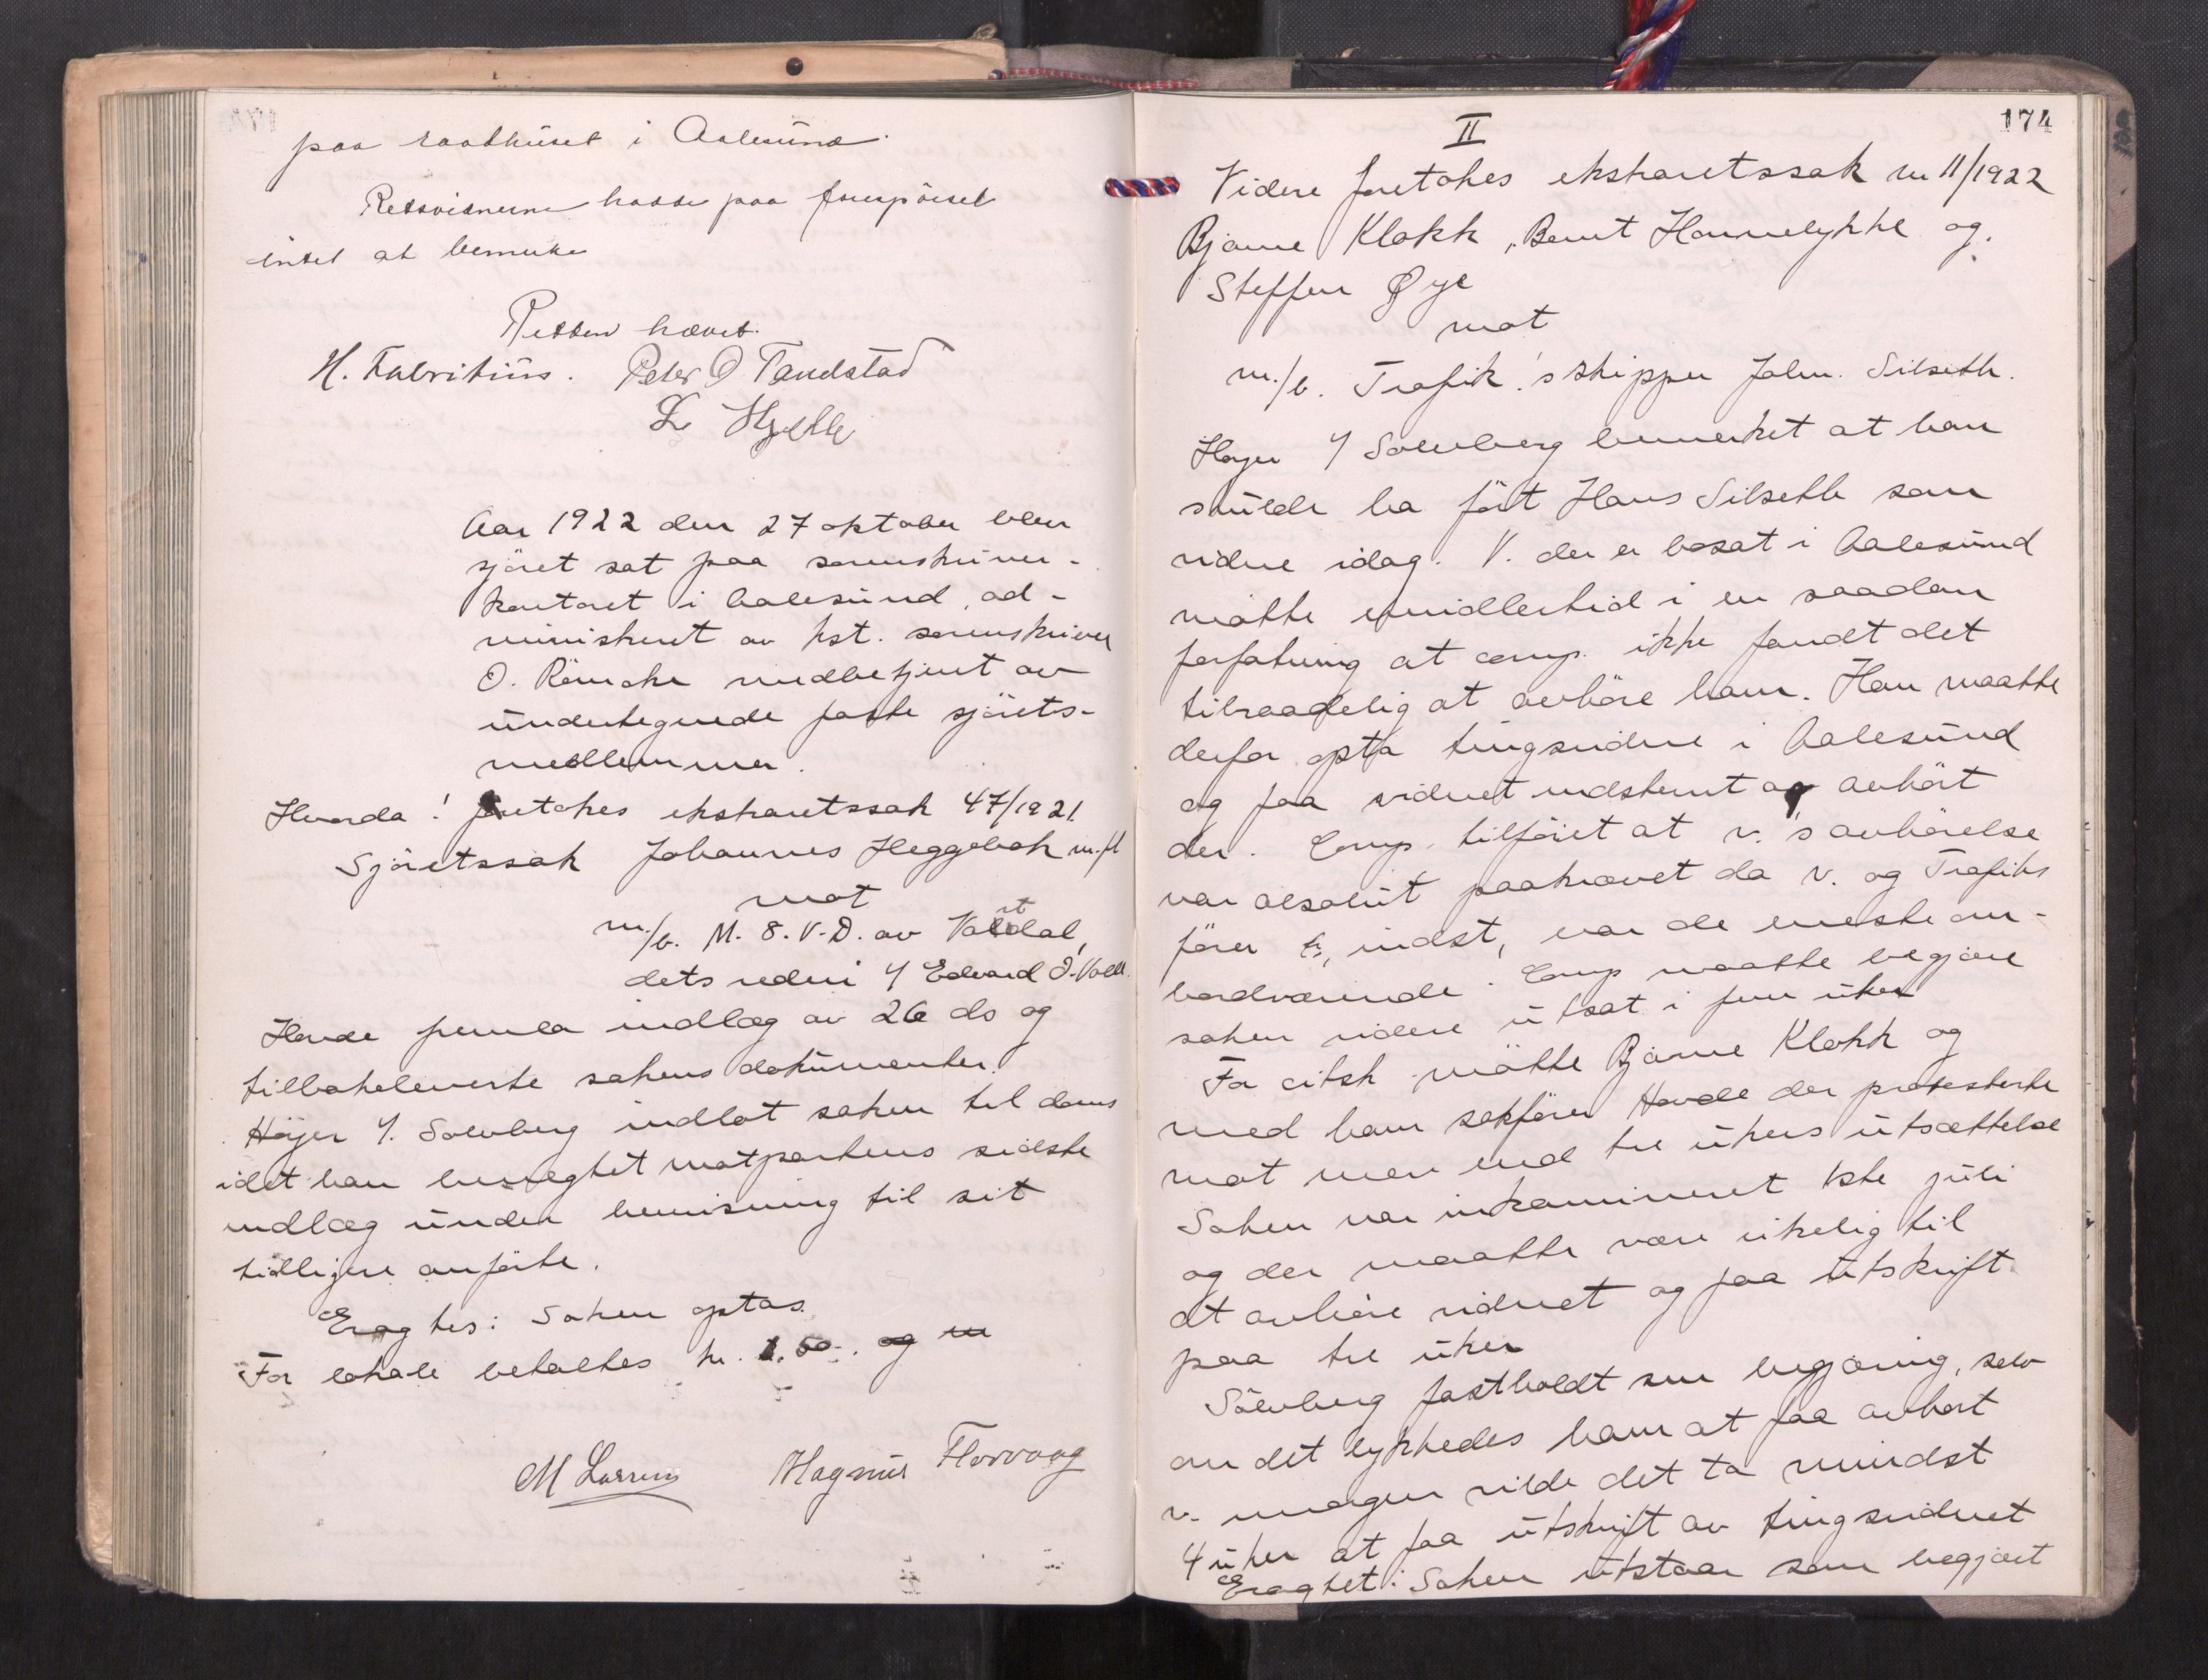 paa raadhuset i Aalesund.
Retsvidnerne hadde paa forespörsel
intet at bemerke
Retten hævet.
H. Fabritius. Peter O Tandstad
L Hjelle
Aar 1922 den 27 oktober blev
sjöret sat paa sorenskriver-
kontoret i Aalesund, ad-
ministreret av kst. sorenskriver
O. Röncke medbetjent av
undertegnede faste sjörets-
medlemmer.
Hvorda! foretokes ekstraretssak 47/1921.
Sjöretssak Johannes Heggebak m.fl
mot
m/b. M. 8. V.D. av Vartdal,
dets rederi v/ Edvard O. Voll.
Hovde fremla indlæg av 26 ds og
tilbakeleverte sakens dokumenter.
Höyer v/ Solvberg indlot saken til doms
idet han benegtet motpartens sidste
indlæg under henvisning til sit
tidligere anförte.
Eragtes: Saken optas.
For lokale betaltes kr. 1.50. og m
M Larsen Magnus Flovaag
174
II
Videre foretokes ekstraretssak nr 11/1922
Bjarne Klokk, Bernt Hannelykke og
Steffen Øye
mot
m./b. Trafik's skipper John. Silseth.
Höyer v/ Solvberg bemerket at han
skulde ha fört Hans Silseth som
vidne idag. V. der er bosat i Aalesund
mötte imidlertid i en saadan
forfatning at comp. ikke fandt det
tilraadelig at avhöre ham. Han maatte
derfor opta tingsvidne i Aalesund
og faa vidnet indstevnt og avhört
der. Comp. tilföiet at v.'s avhörelse
var absolut paakrævet da v. og Trafiks
förer, indst, var de eneste om-
bordværende. Comp maatte begjære
saken videre utsat i fem uker
For citsk mötte Bjarne Klokk og
med ham sakförer Hovde der protesterte
mot mer end tre ukers utsættelse
Saken var inkamineret 1ste juli
og der maatte være rikelig til
at avhöre vidnet og faa utskrift
paa tre uker
Sölvberg fastholdt sin begjæring, selv
om det lykkedes ham at faa avhört
v. imorgen vilde det ta mindst
4 uker at faa utskrift av tingsvidnet
Eragtet: Saken utstaar som begjært